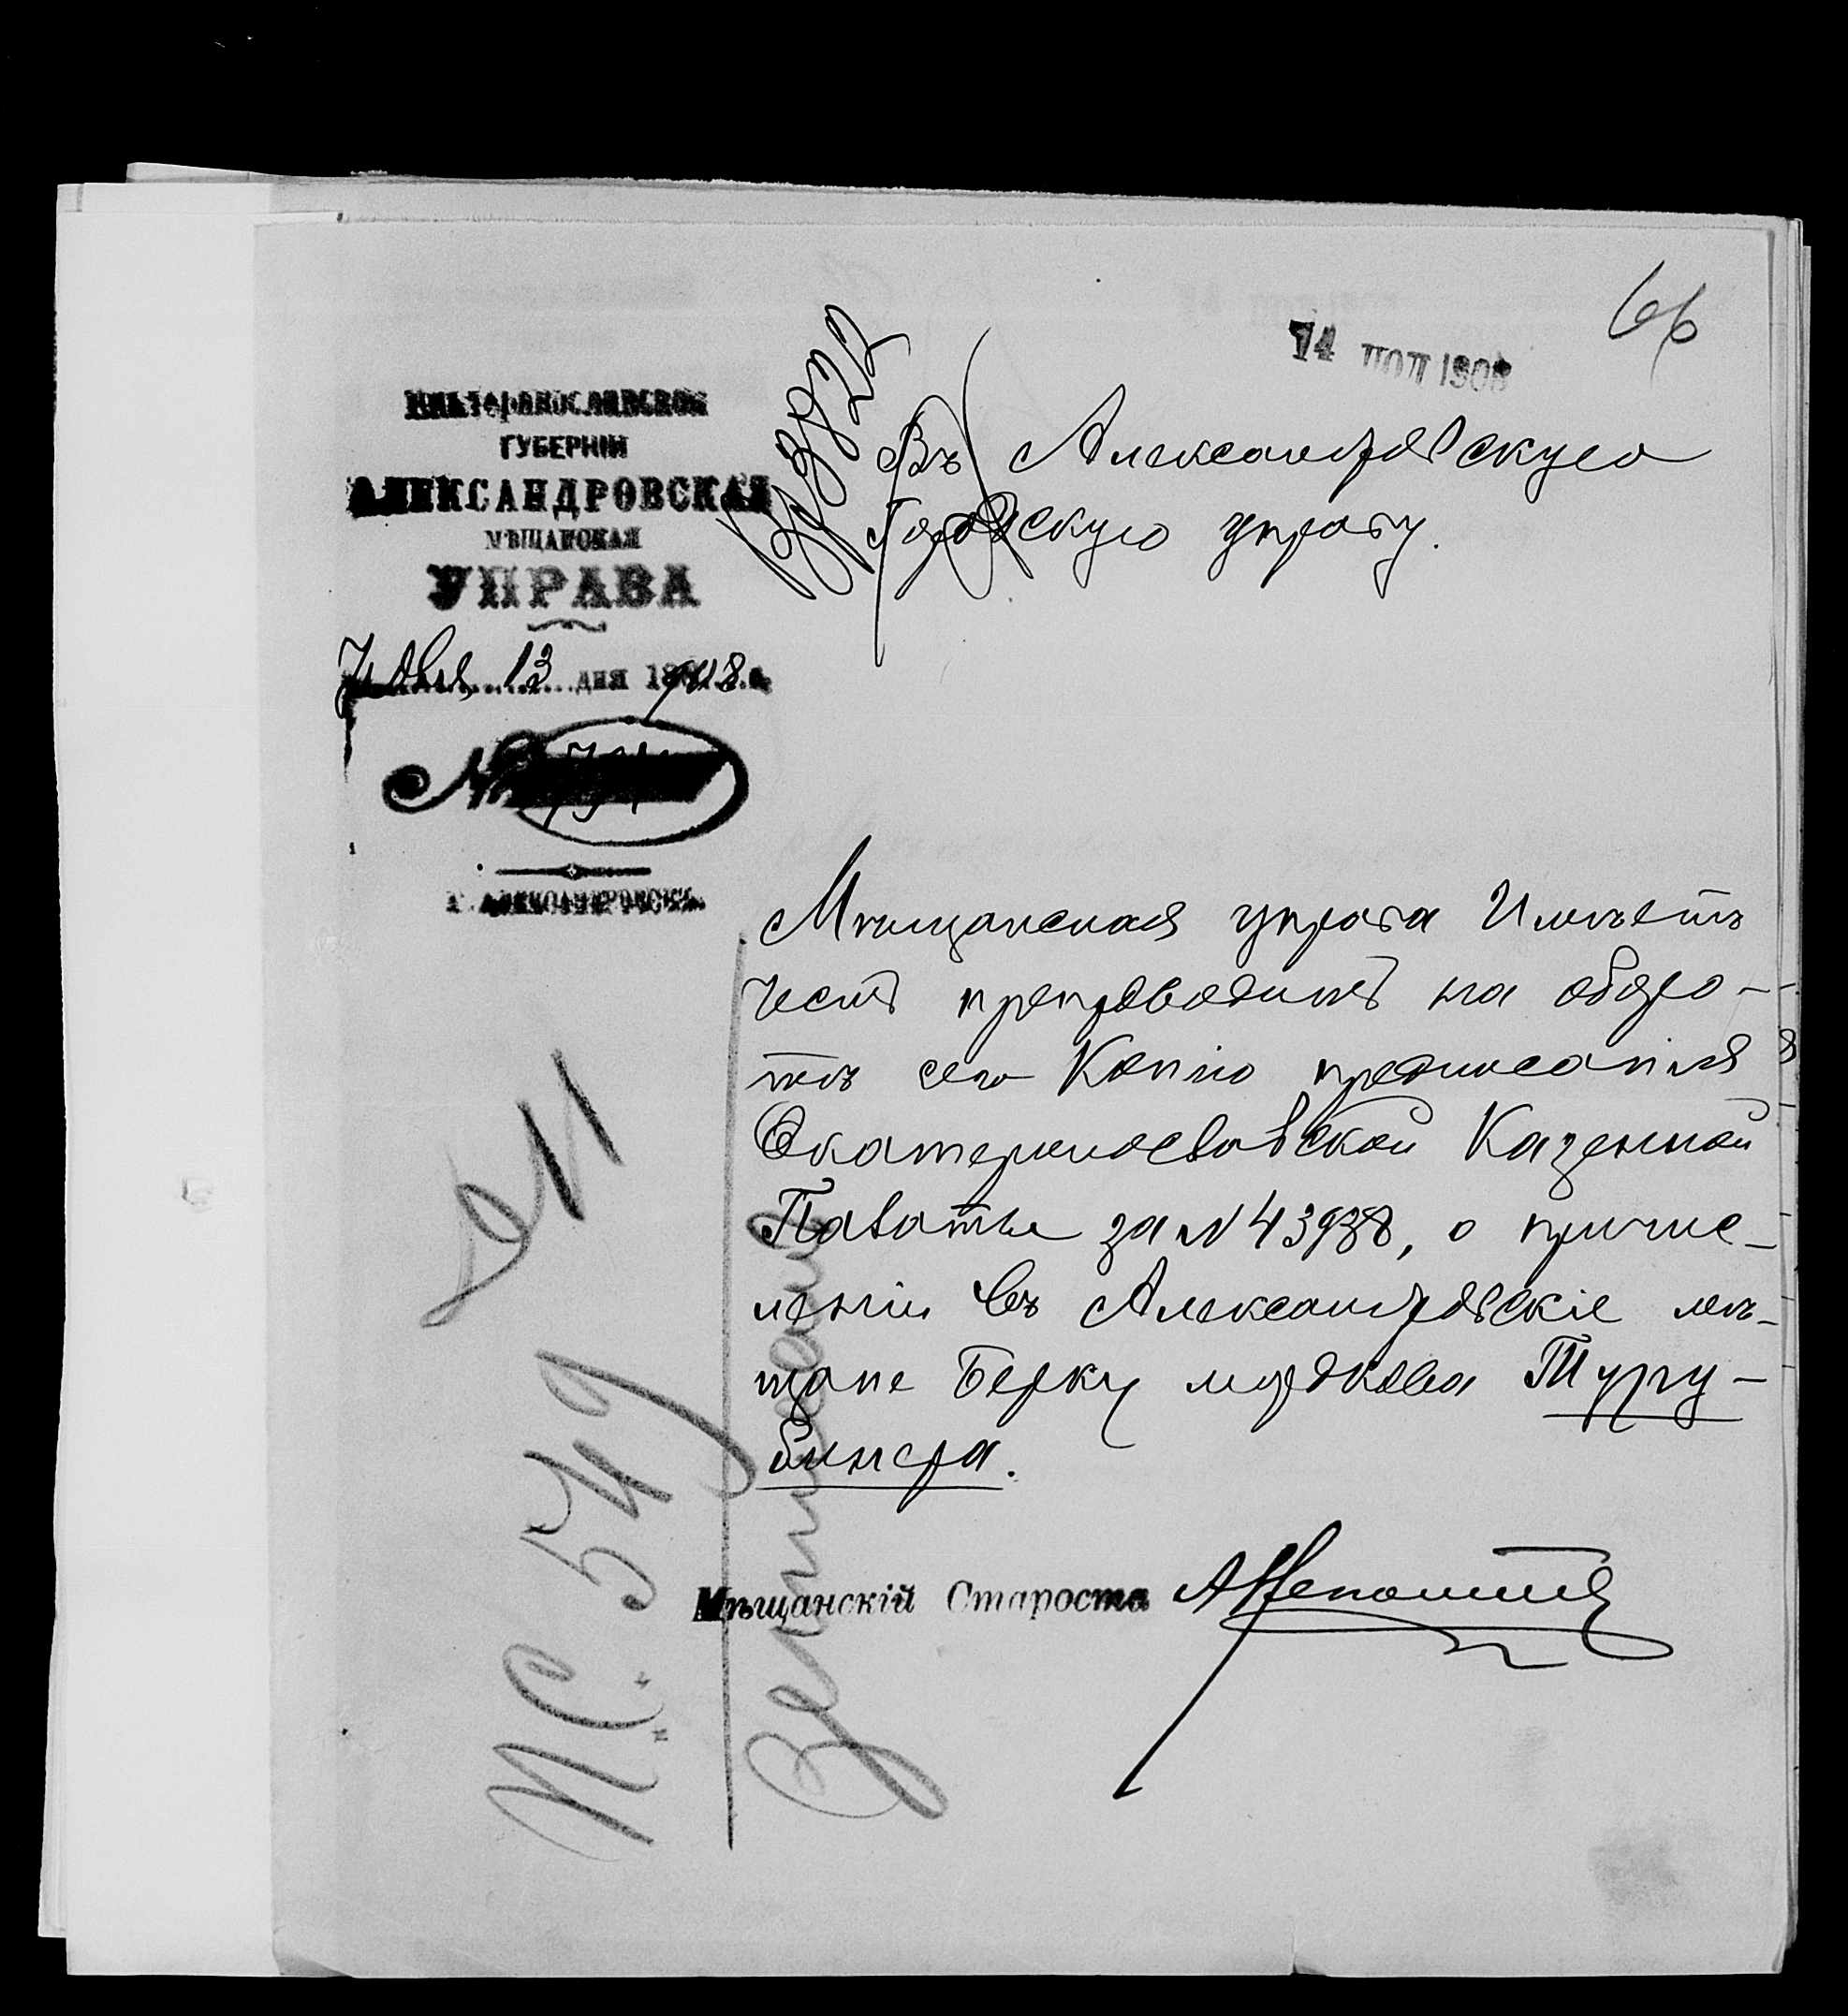 66
14 ІЮЛ 1908
ЕКАТЕРИНОСЛАВСКОЙ
ГУБЕРНІИ
АЛЕКСАНДРОВСКАЯ
МѢЩАНСКАЯ
УПРАВА
13 дня 1908 г.
№
Г. АЛЕКСАНДРОВСКЪ
3822
Въ Александровскую
Городскую управу.
Мѣщанская управа Имѣетъ
честь препроводить на оборо-
тѣ сего Копію предписанія
Екатеринославской Казенной
Палаты за № 43938, о причис-
леніи въ Александровскіе мѣ-
щане Берку мордкова Туру-
бинера.
Мѣщанскій Староста
549